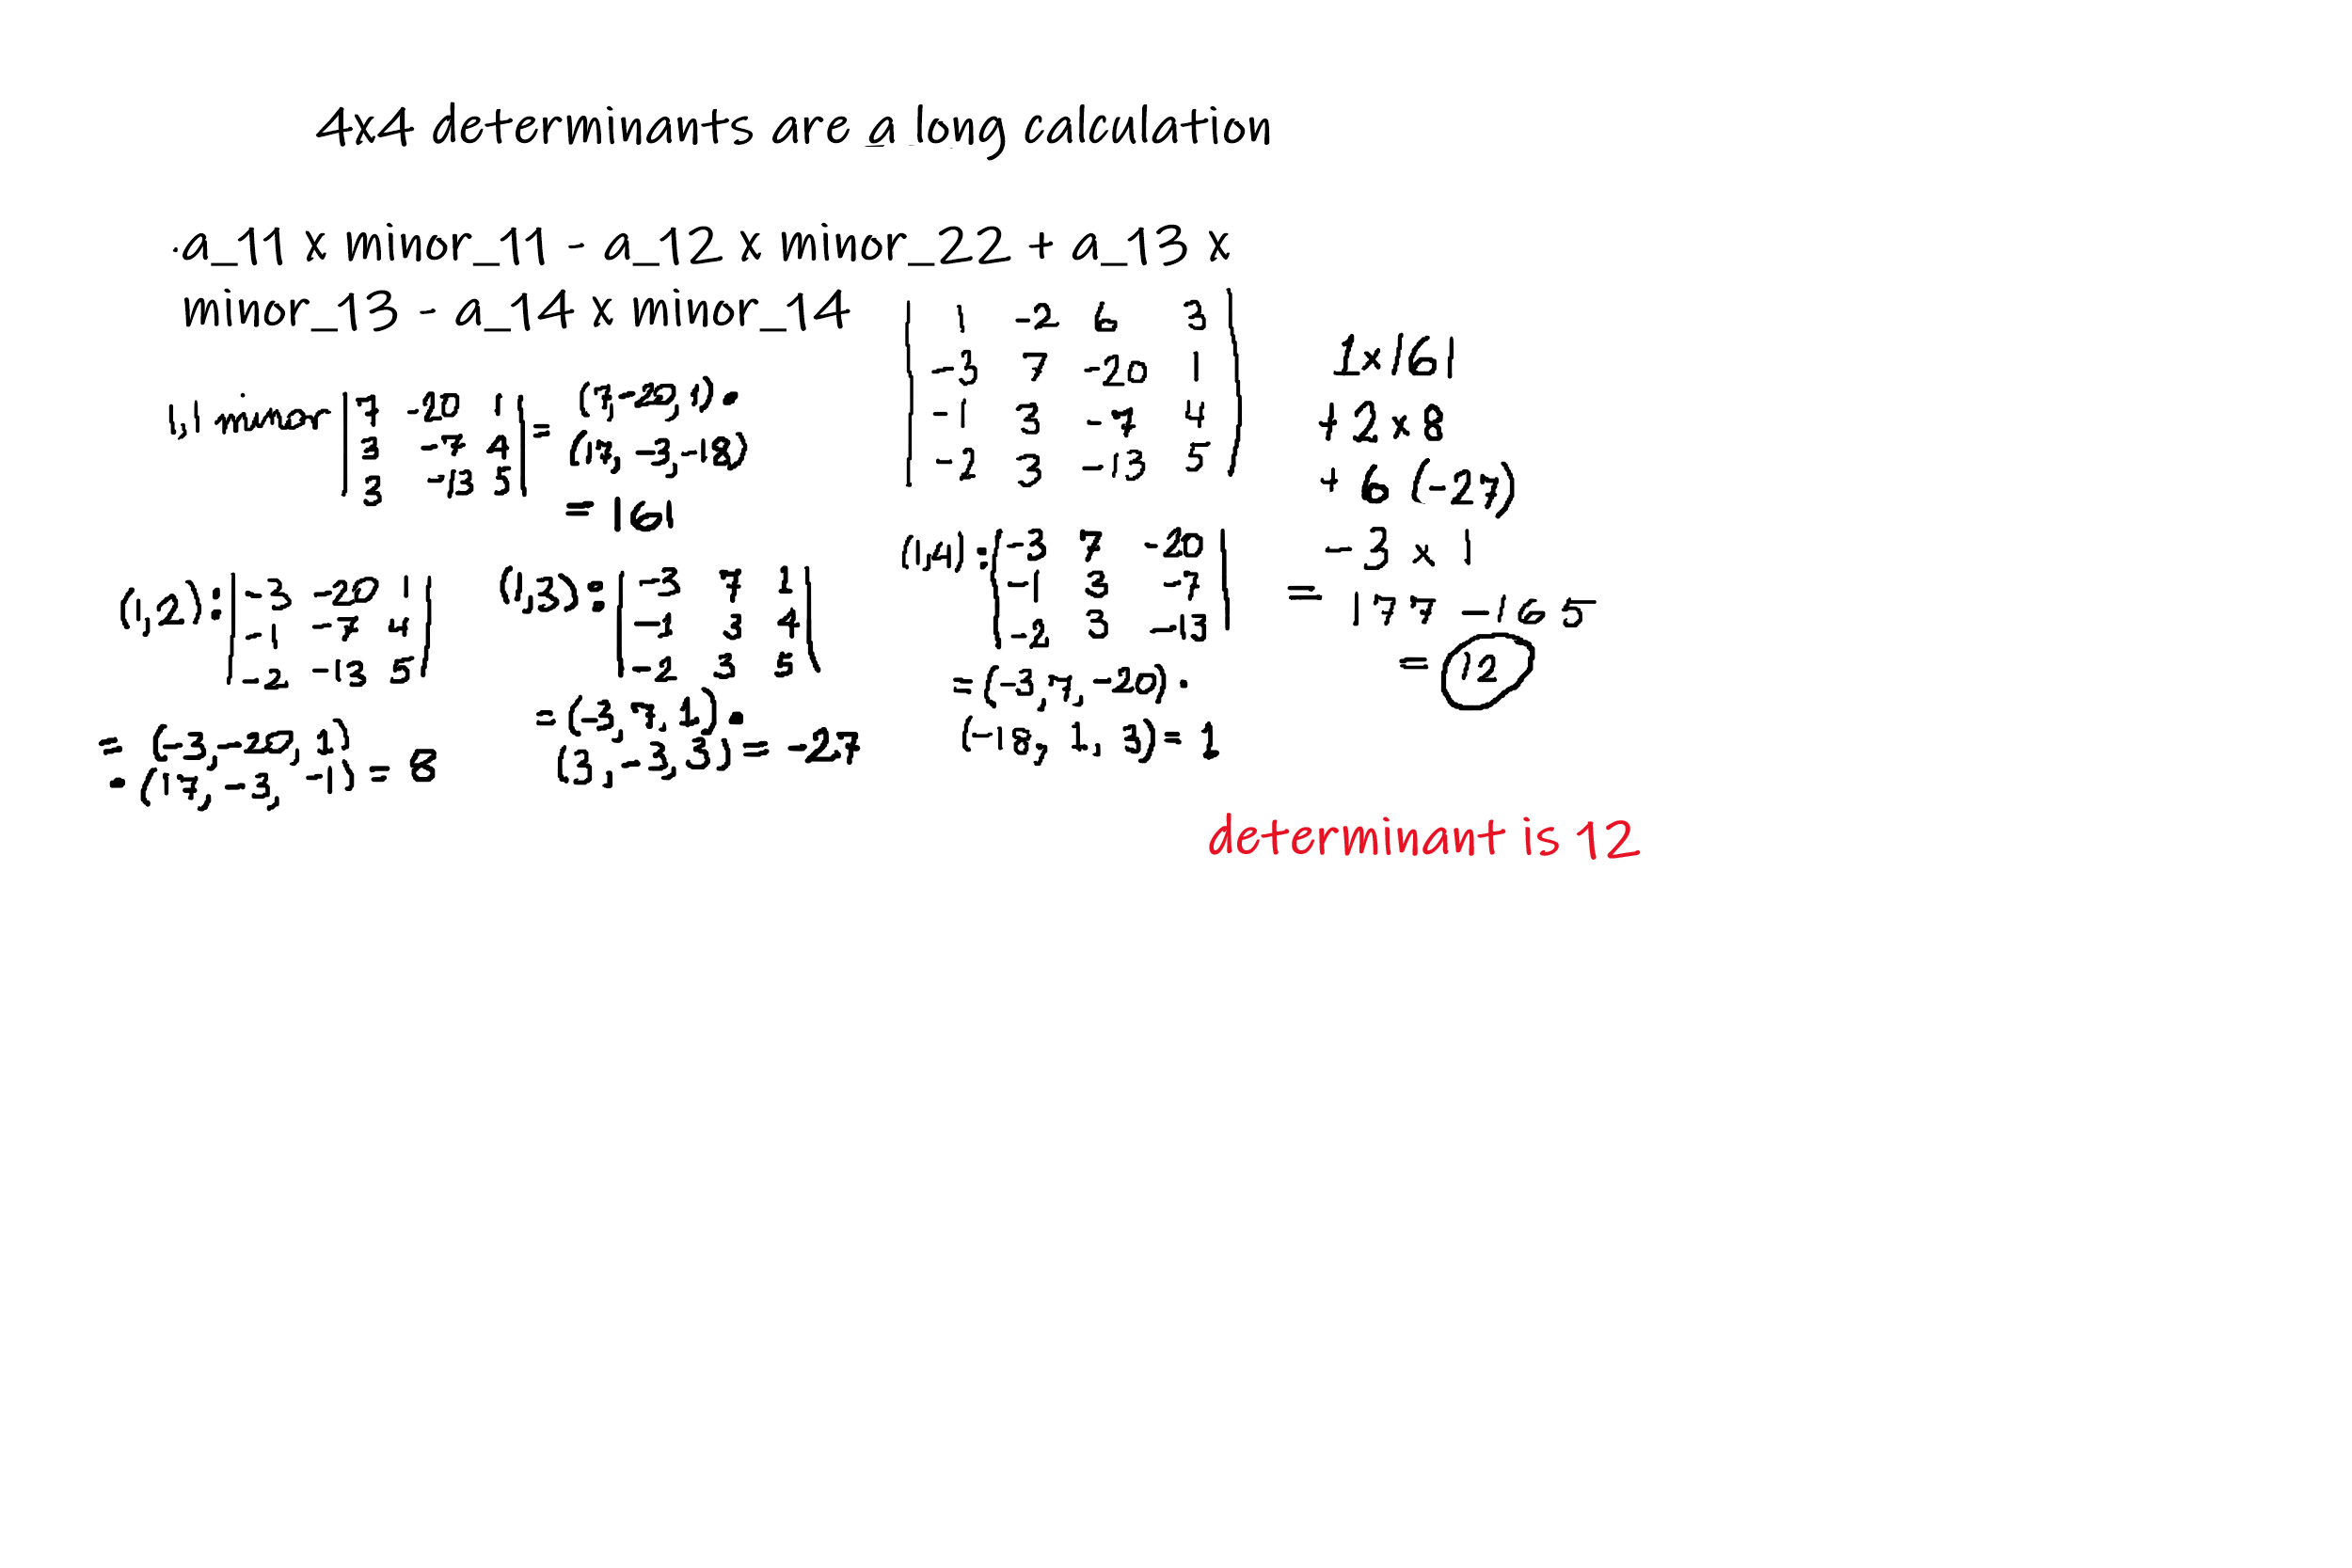 4x4 determinants are a long calculation
.a_11 x minor_11 - a_12 x minor_22 + a_13 x
minor_13 - a_14 x minor_14
| 1 -2 6 3 |
| -3 7 -20 1 |
| -1 3 -7 4 |
| -2 3 -13 5 |
1,1 minor | 7 -20 1 | = (7,-20,1) •
| 3 -7 4 | (17, -3, -18)
| 3 -13 5 |
= 161
(1,2): | -3 -20 1 |
| -1 -7 4 |
| -2 -13 5 |
= (-3,-20, 1)
• (17, -3, -1) = 8
(1,3): | -3 7 1 |
| -1 3 4 |
| -2 3 5 |
= (-3,7,1) •
(3,-3,3) = -27
(1,4): | -3 7 -20 |
| -1 3 -7 |
| -2 3 -13 |
= (-3,7,-20) •
(-18, 1, 3) = 1
1x161
+2x8
+6 (-27)
-3 x 1
= 177 -165
= 12
determinant is 12